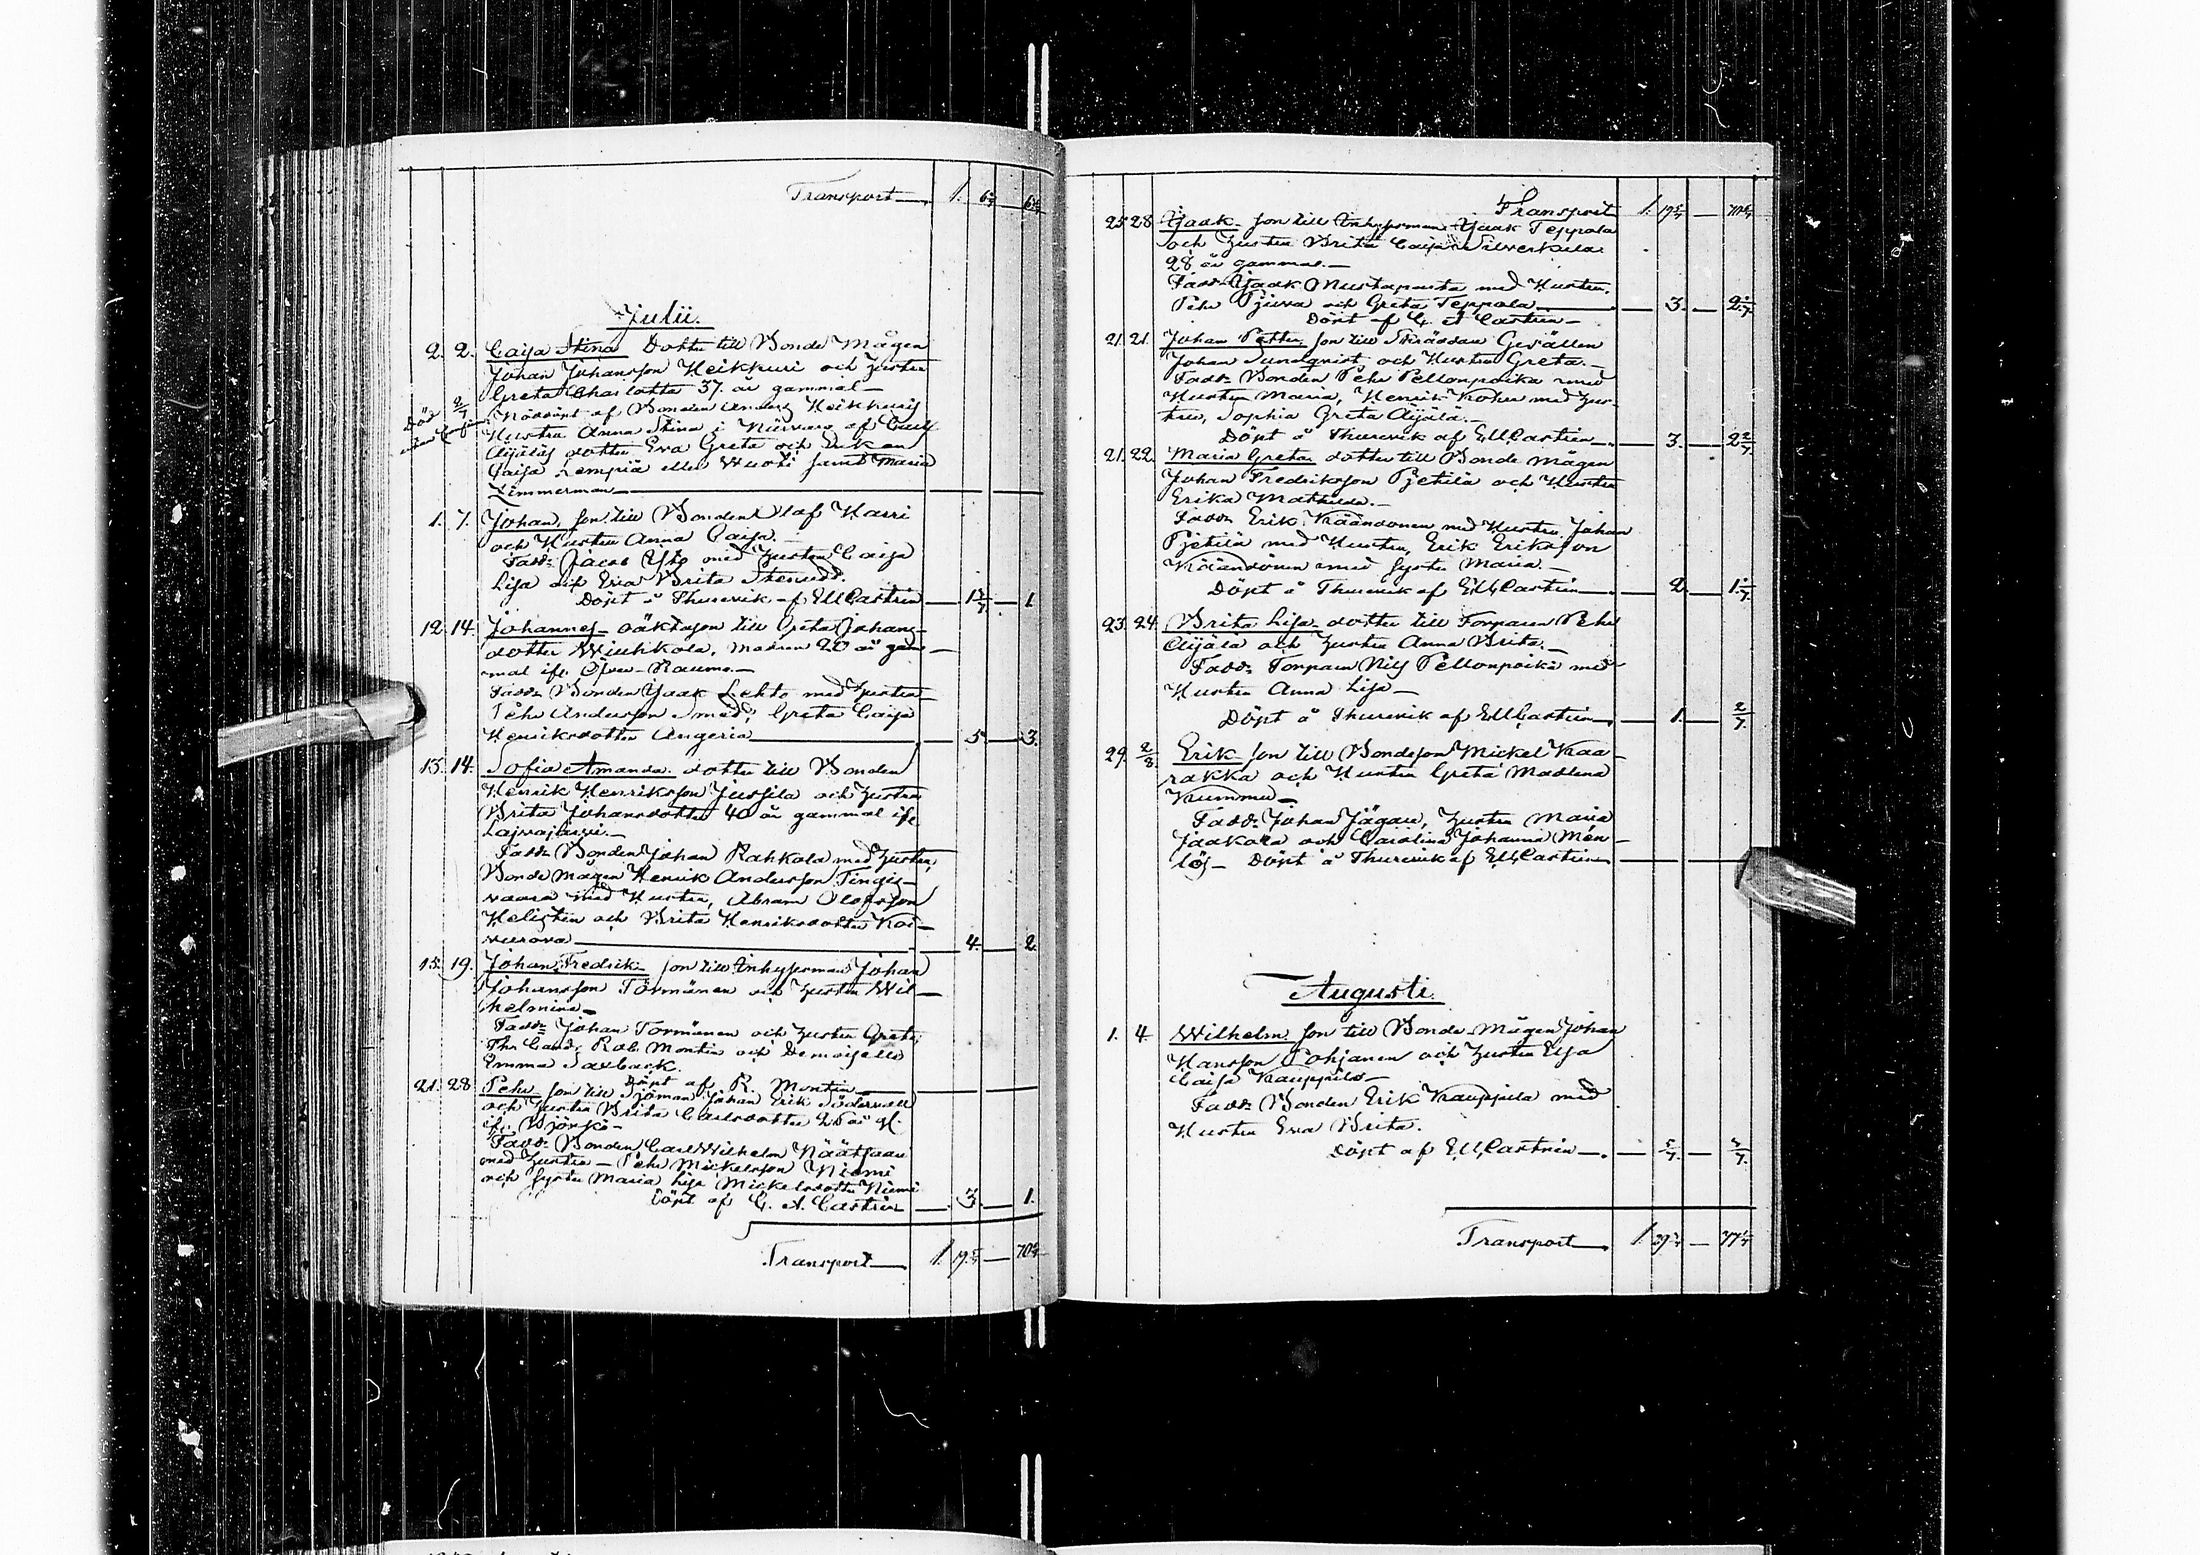 Transport 1. 6 5/7 64
Julii.
2. 2. Caija Stina Dotter till Bonde Mågen
Johan Johansson Heikkuri och hustru
Greta Charlotta 37. år gammal
Död 2/7 Nöddöpt af Bonden Anders Heikkuris
Hustru Anna Stina i Närvaro af Carl
Äijäläs dotter Eva Greta och
Caisa Lempiä eller Wuoti samt Maria
Zimmerman
1. 7. Johan, son till Bonden Olof Harri
och Hustru Anna Caisa.
Fadd: Jacob Yli med hustru Caisa
Lisa och Eva Brita Stenudd.
Döpt å Thurevik af EMCastrén 1 2/7 1.
12. 14. Johannes oäkta son till Greta Johans-
dotter Wiuhkola, modren 20 år gam-
mal ifr. Öfver-Rauma.
Fadd: Bonden Isaak Lehto med hustru
Pehr Andersson Smed; Greta Caisa
Henriksdotter Angeria 5. 3.
15. 14. Sofia Amanda. dotter till Bonden
Henrik Henriksson Jussila och hustru
Brita Johansdotter 40 år gammal ifr.
Lajvajärvi.
Fadd: Bonden Johan Rahkola med hustru,
Bonde Mågen Henrik Andersson Tingis-
vaara med Hustru, Abram Olofsson
Helistén och Brita Henriksdotter Koi-
vurova 4. 2.
15. 19. Johan Fredrik son till Inhysman Johan
Johansson Törmänen och hustru Wil-
helmina
Fadd: Johan Törmänen och hustru Greta,
Th: Cand: Rob. Montin och Demoiselle
Emma
Döpt af R. Montin
21. 28. Pehr son till Sjöman Johan Erik Södervall
och hustru Brita Carlsdotter 25 år gl.
ifr. Björkö
Fadd: Bonden Carl Wilhelm Näätsaari
med hustru Pehr Mickelsson Niemi
och syster Maria Lisa Mickelsdotter Niemi
Döpt af C. A. Castrén 3. 1.
Transport 1. 19 5/7 70 6/7
Transport 1. 19 5/7 70 6/7
25 28 Isaak son till Inhysman Isaak Teppola
och hustru Brita Caisa Silverkula
28 år gammal.
Fadd: Isaak Mustaparta med Hustru.
Pehr Pjuva och Greta Teppola 3. 2 2/7
Döpt af C. A Castrén
21. 21. Johan Petter son till Skräddare Gesällen
Johan Sundqvist och Hustru Greta.
Fadd: Bonden Pehr Pellonpoika med
Hustru Maria, Henrik Koher med hus-
tru, Sophia Greta Äijälä.
Döpt å Thurevik af EMCastrén 3. 2 2/7
21. 22. Maria Greta dotter till Bonde Mågen
Johan Fredriksson Pjetilä och Hustru
Erika Mathilda.
Fadd: Erik Käändönen med Hustru. Johan
Pjetilä med Hustru, Erik Eriksson
Käändönen med syster Maria.
Döpt å Thurevik af EMCastrén 2. 1 2/7
23. 24. Brita Lisa dotter till Torparen Pehr
Äijälä och hustru Anna Brita.
Fadd: Torparen Nils Pellonpoika med
Hustru Anna Lisa
Döpt å Thurevik af EMCastrén 1. 2/7.
29. 2/8 Erik son till Bondeson Mickel Kaa-
rakka och Hustru Greta Madlena
Kummu
Fadd: Johan Jägare, hustru Maria
Jaakola och Carolina Johanna Mén-
lös Döpt å Thurevik af EMCastrén
Augusti.
1. 4. Wilhelm son till Bonde-Mågen Johan
Hansson Pohjanen och hustru Elsa
Caisa Kauppila
Fadd: Bonden Erik Kauppila med
Hustru Eva Brita.
Döpt af EMCastrén 5/7. 3/7.
Transport 1. 29 3/7 77 4/7